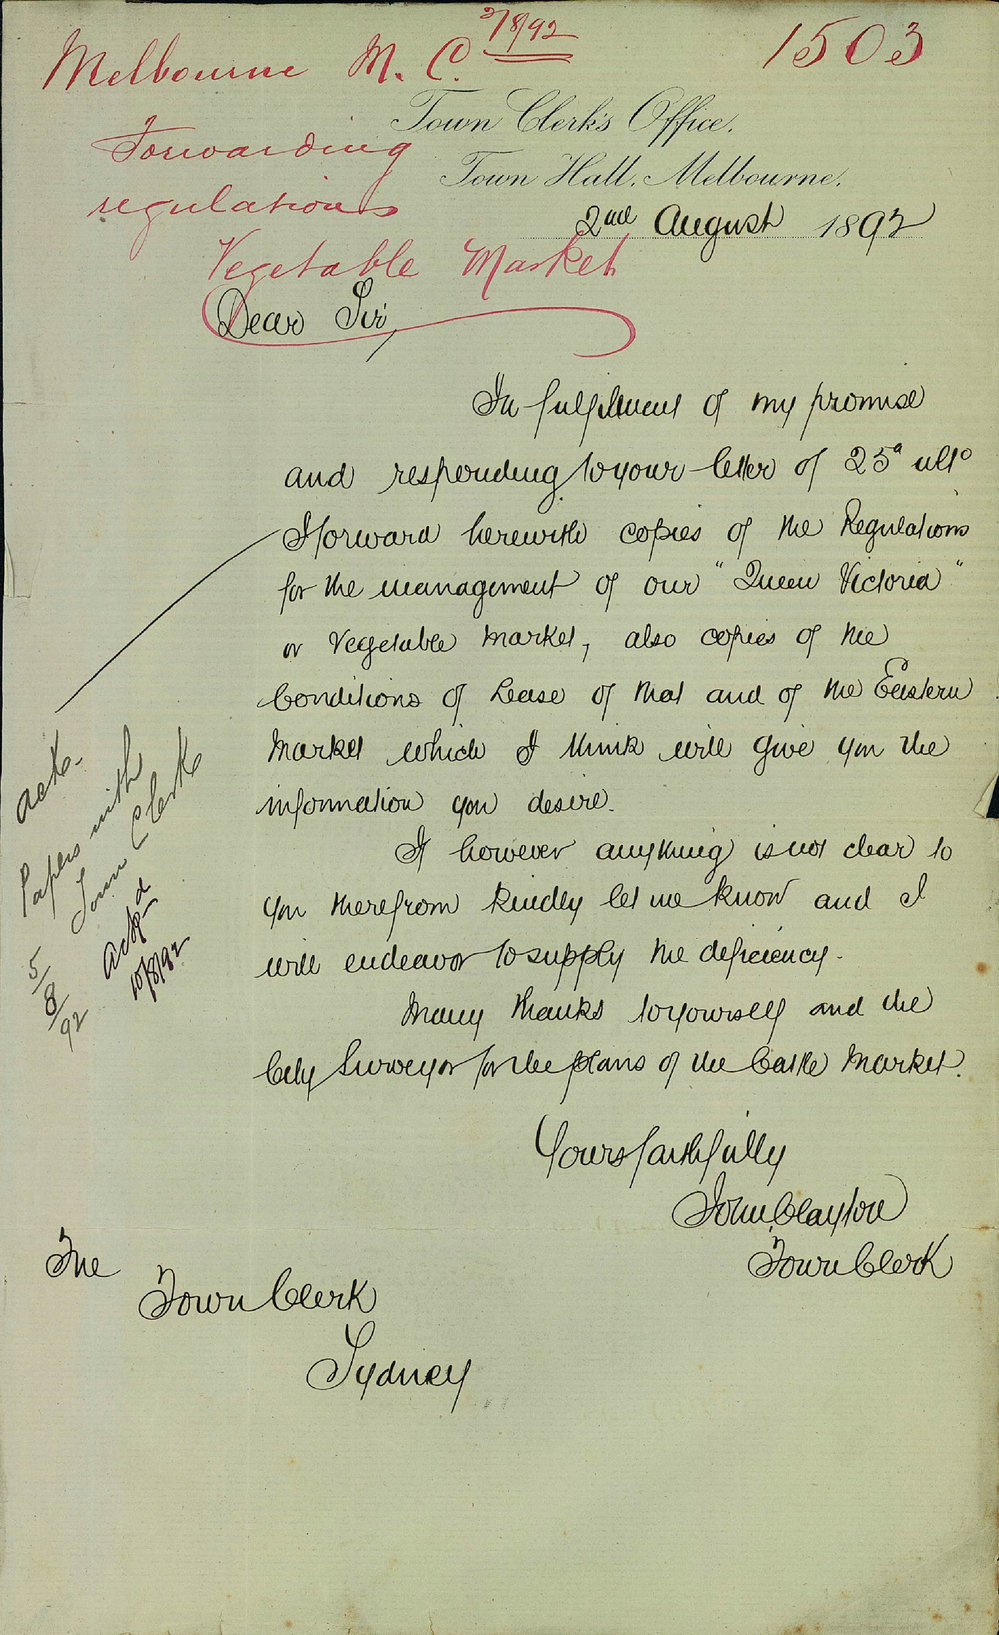 Melbourne M. C. 2/8/92
1503
Forwarding
regulations
Vegetable Market
Town Clerk's Office,
Town Hall, Melbourne,
2nd August 1892
Dear Sir,
In fulfilment of my promise
and responding to your letter of 25th ulto
I forward herewith copies of the Regulations
for the management of our "Queen Victoria"
or Vegetable Market, also copies of the
Conditions of Lease of that and of the Eastern
Market which I think will give you the
information you desire.
If however anything is not clear to
you therefrom kindly let me know and I
will endeavor to supply the deficiency.
Many thanks to yourself and the
City Surveyor for the plans of the Cattle Market.
Yours faithfully
John Clayton
Town Clerk
The
Town Clerk
Sydney
Papers with
Town Clerk
5/8/92
Ackd
10/8/92